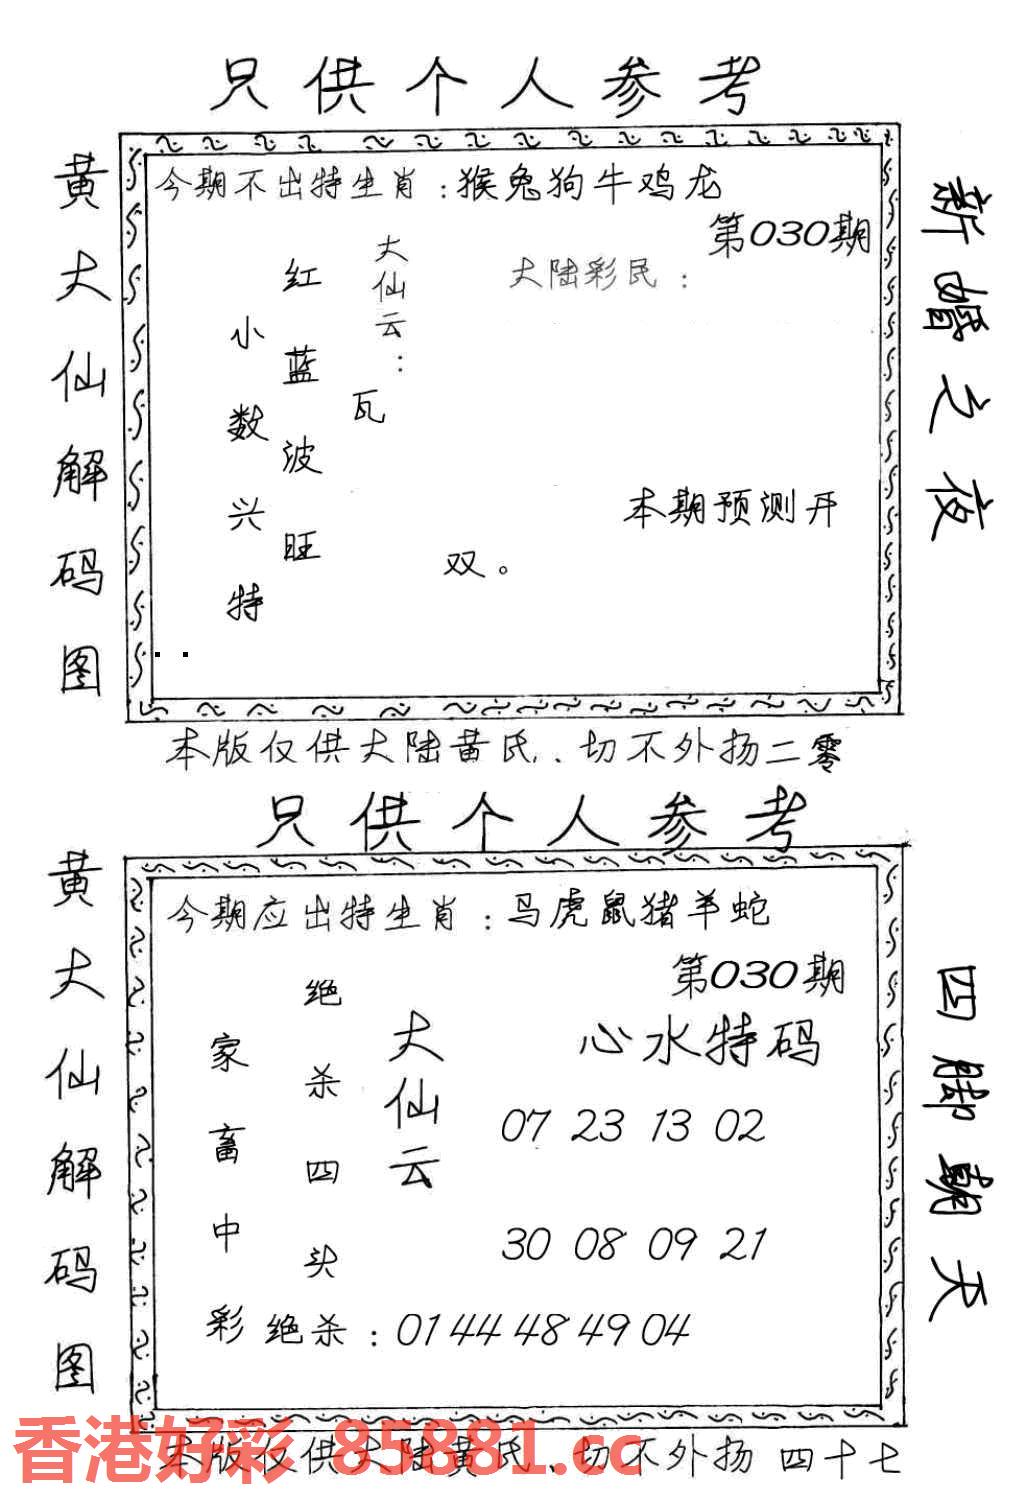 只供个人参考
黄大仙解码图
今期不出特生肖:猴兔狗牛鸡龙
第030期
大陆彩民:
大仙云:
瓦
红蓝波旺
小数兴特
本期预测开
双。
新婚之夜
本版仅供大陆黄民、切不外扬二零
只供个人参考
黄大仙解码图
今期应出特生肖:马虎鼠猪羊蛇
第030期
心水特码
大仙云
绝杀四头
家畜中彩
07 23 13 02
30 08 09 21
绝杀:01 44 48 49 04
四脚朝天
本版仅供大陆黄民、切不外扬 四十七
香港好彩 85881.cc